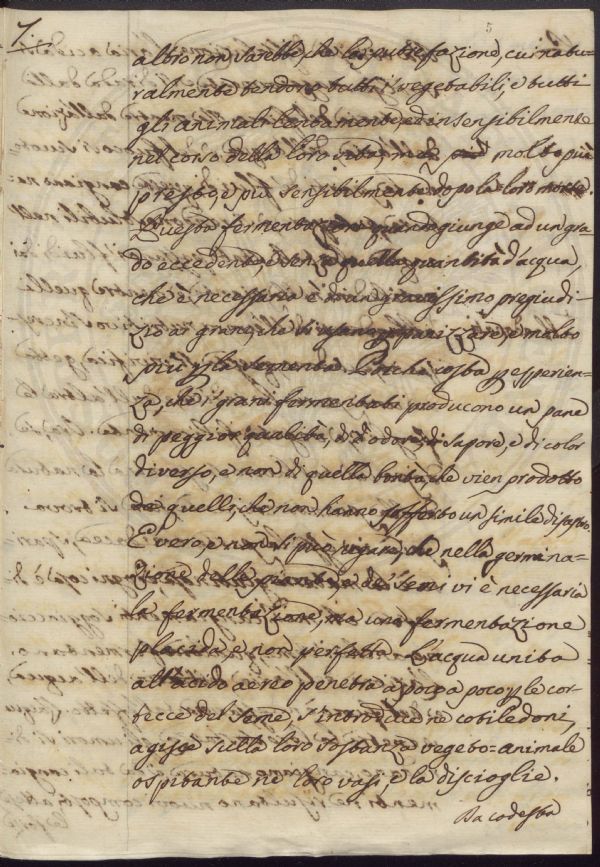 7.
5
altro non sarebbe, che la putrefazione, cui natu=
ralmente tendono tutti i vegetabili, e tutti
gli animali lentamente, ed insensibilmente
nel corso della loro vita, ma molto più
presto, e più sensibilmente dopo la loro morte.
Questa fermentazione quando giunge ad un gra
do eccedente, e senza quella quantità d'acqua,
che è necessaria è di un gravissimo pregiudi=
zio ai grani, che si usano per panizzare, e molto
più p la sementa. Poichè costa p esperien=
za, che i grani fermentati producono un pane
di peggior qualità, di odore, di sapore, e di color
diverso, e non di quella bontà, che vien prodotto
da quelli, che non hanno sofferto un simile disastro.
È vero, e non si può negare, che nella germina=
zione delle piante, e de' semi vi è necessaria
la fermentazione, ma una fermentazione
placida, e non perfetta. L'acqua unita
all'acido aereo penetra a poco a poco p le cor=
tecce del seme, s'introduce ne cotiledoni,
agisce sulla loro sostanza vegeto=animale
ospitante ne' loro vasi, e la discioglie.
Da codesta